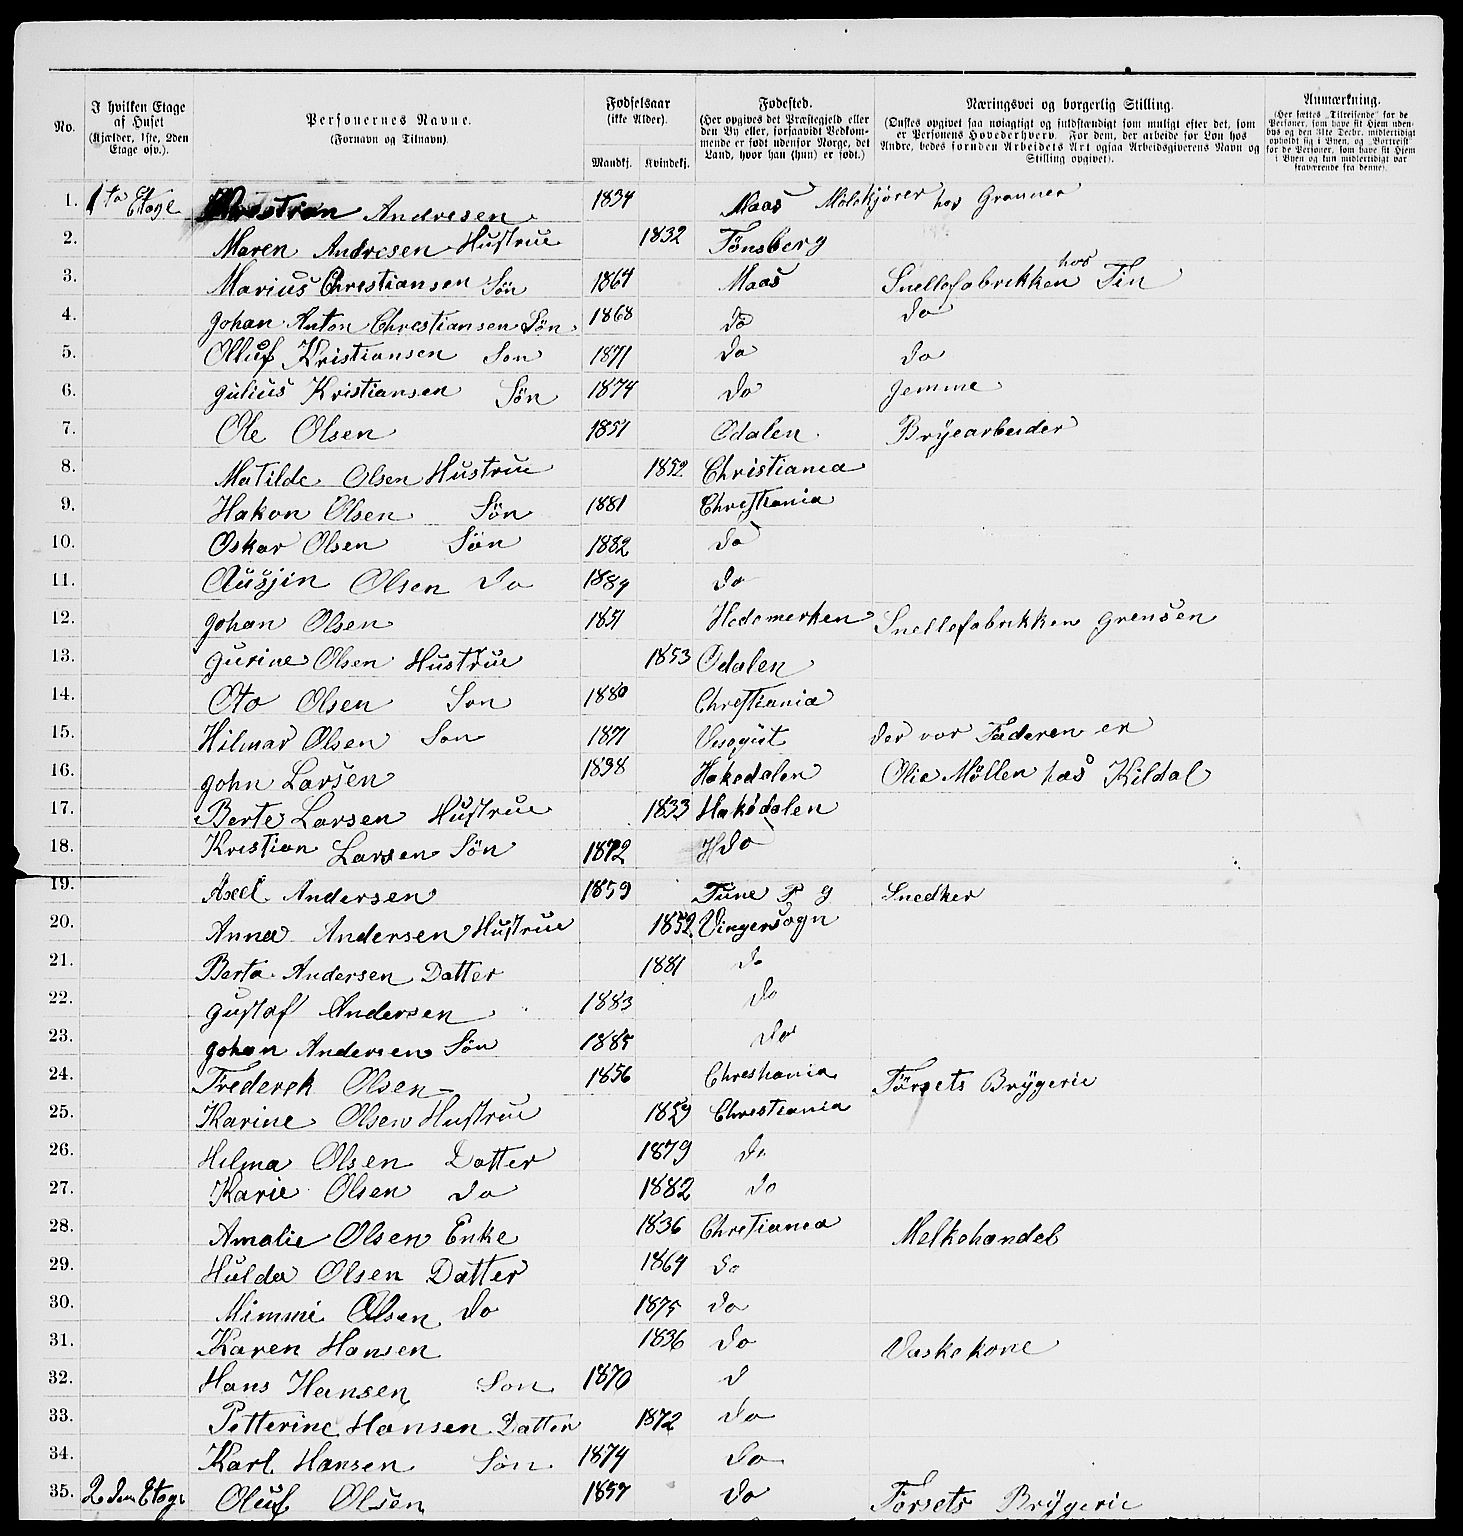 No.
I hvilken Etage af Huset (Kjælder, 1ste, 2den Etage osv.).
Personernes Navne. (Fornavn og Tilnavn).
Fødselsaar (ikke Alder). Mandkj. Kvindekj.
Fødested. (Her opgives det Præstegjeld eller den By eller, forsaavidt Vedkommende er født udenfor Norge, det Land, hvor han (hun) er født.)
Næringsvei og borgerlig Stilling. (Ønskes opgivet saa nøiagtigt og fuldstændigt som muligt efter det, som er Personens Hovederhverv. For dem, der arbeide for Løn hos Andre, bedes foruden Arbeidets Art ogsaa Arbeidsgiverens Navn og Stilling opgivet).
Anmærkning. (Her sættes „Tilreisende“ for de Personer, som have sit Hjem udenbys og den 31te Decbr. midlertidigt opholdt sig i Byen, og „Bortreist“ for de Personer, som have sit Hjem i Byen og kun midlertidigt var fraværende fra denne).
1. 1ta Etage Andresen 1834 Maas Mølekjører hos Granner
2. Maren Andresen Hustrue 1832 Tønsberg
3. Marius Christiansen Søn 1864 Maas Snellefabrikken hos Fin
4. Johan Anton Christiansen Søn 1868 do do
5. Olluf Kristiansen Son 1871 do do
6. Julius Kristiansen Søn 1874 do Jemme
7. Ole Olsen 1851 Odalen Bryearbeider
8. Matilde Olsen Hustrue 1852 Christiania
9. Hakon Olsen Søn 1881 Christiania
10. Oskar Olsen Søn 1882 do
11. Ausjin Olsen do 1884 do
12. Johan Olsen 1851 Hedemerken Snellefabrikken Grensen
13. Gurine Olsen Hustrue 1853 Odalen
14. Oto Olsen Son 1880 Christiania
15. Hilmar Olsen Son 1871 der vor Faderen er
16. John Larsen 1838 Hakedalen Olie Møllen hos Kildal
17. Berte Larsen Hustrue 1833 Hakedalen
18. Kristian Larsen Søn 1872 H do
19. Axel Andersen 1859 Tune P g Snedker
20. Anna Andersen Hustrue 1852 Vingersogn
21. Berta Andersen Datter 1881 do
22. Gustaf Andersen 1883 do
23. Johan Andersen Søn 1885 do
24. Frederek Olsen 1856 Christiania Førsets Brygerie
25. Karine Olsen Hustrue 1859 Christiania
26. Hilma Olsen Datter 1879 do
27. Karie Olsen do 1882 do
28. Amalie Olsen Enke 1836 Christiania Melkehandel
29. Hulda Olsen Datter 1864 do
30. Mimmi Olsen do 1875 do
31. Karen Hansen 1836 do Vaskekone
32. Hans Hansen Son 1870 d
33. Petterine Hansen Datter 1872 do
34. Karl Hansen Søn 1874 do
35. 2den Etage Oluf Olsen 1857 do Førsets Brygerie